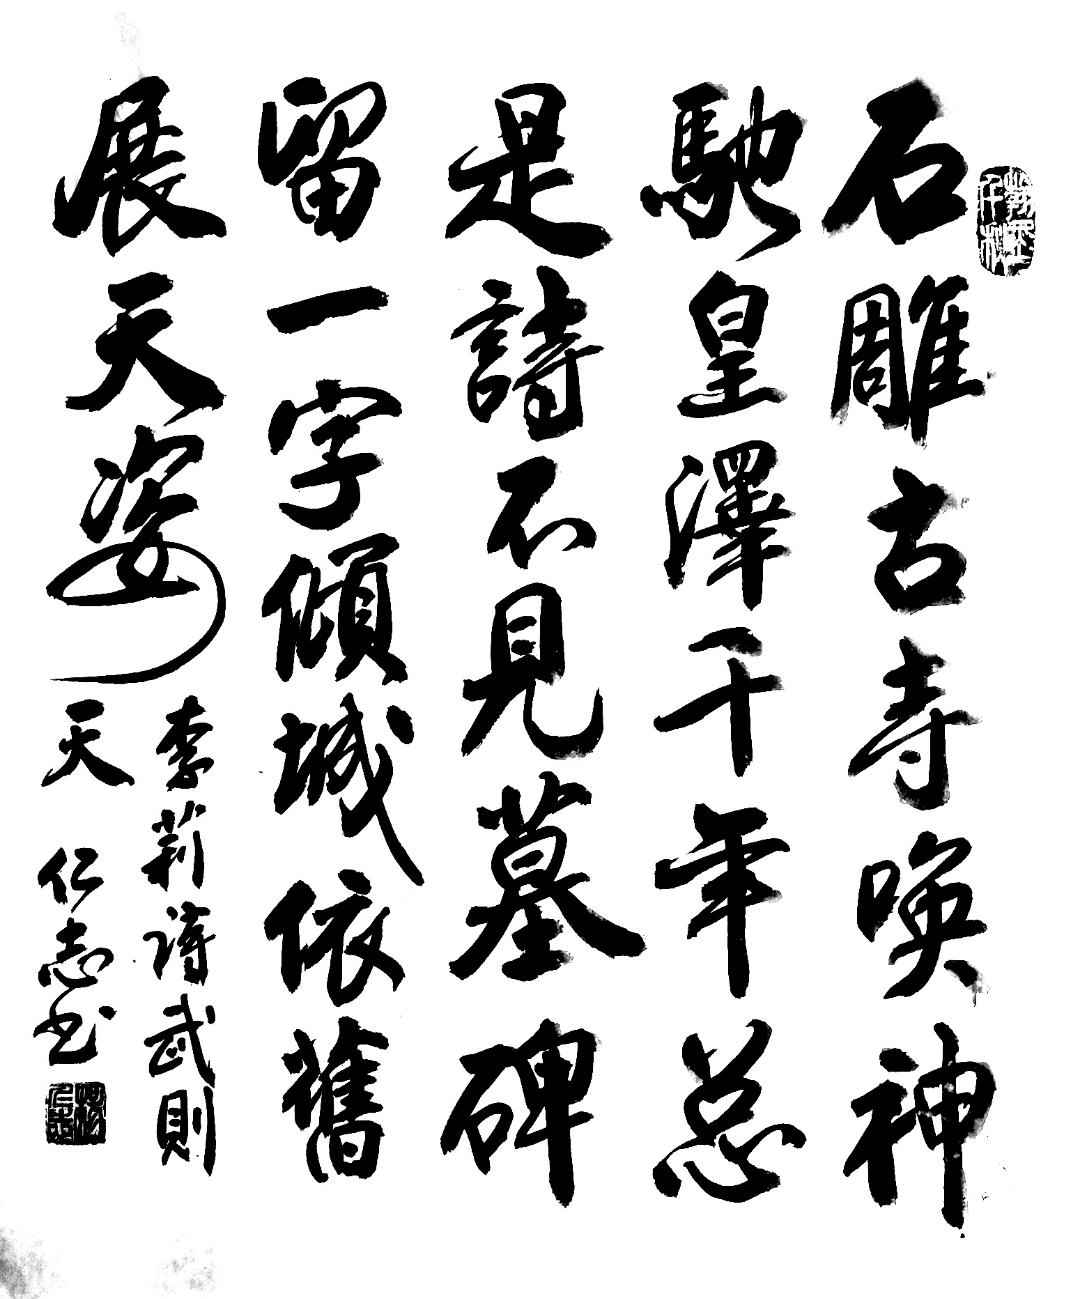 石雕古寺唤神
馳皇澤千年总
是詩不見墓碑
留一字傾城依舊
展天姿
李莉詩武則
天 仁志书